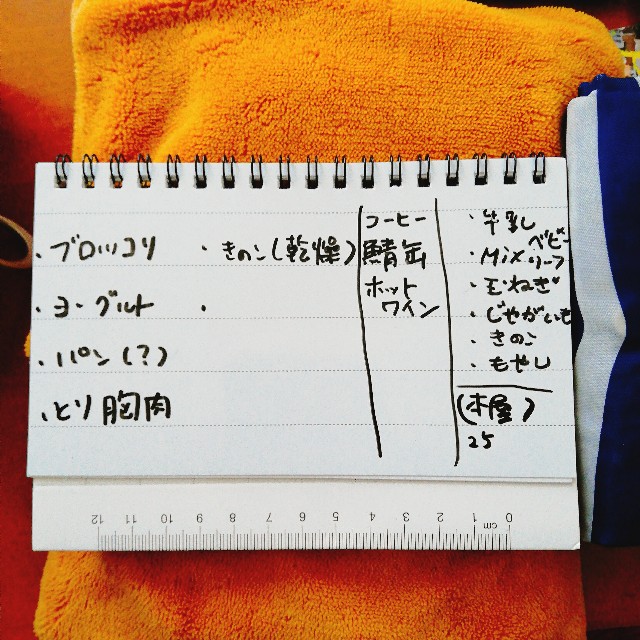 ・ブロッコリ
・ヨーグルト
・パン(?)
・とり胸肉
・きのこ(乾燥)
・
コーヒー
鯖缶
ホット
ワイン
・牛乳
・Mixベビーリーフ
・玉ねぎ
・じゃがいも
・きのこ
・もやし
(本屋)
25
12 11 10 9 8 7 6 5 4 3 2 1 cm 0